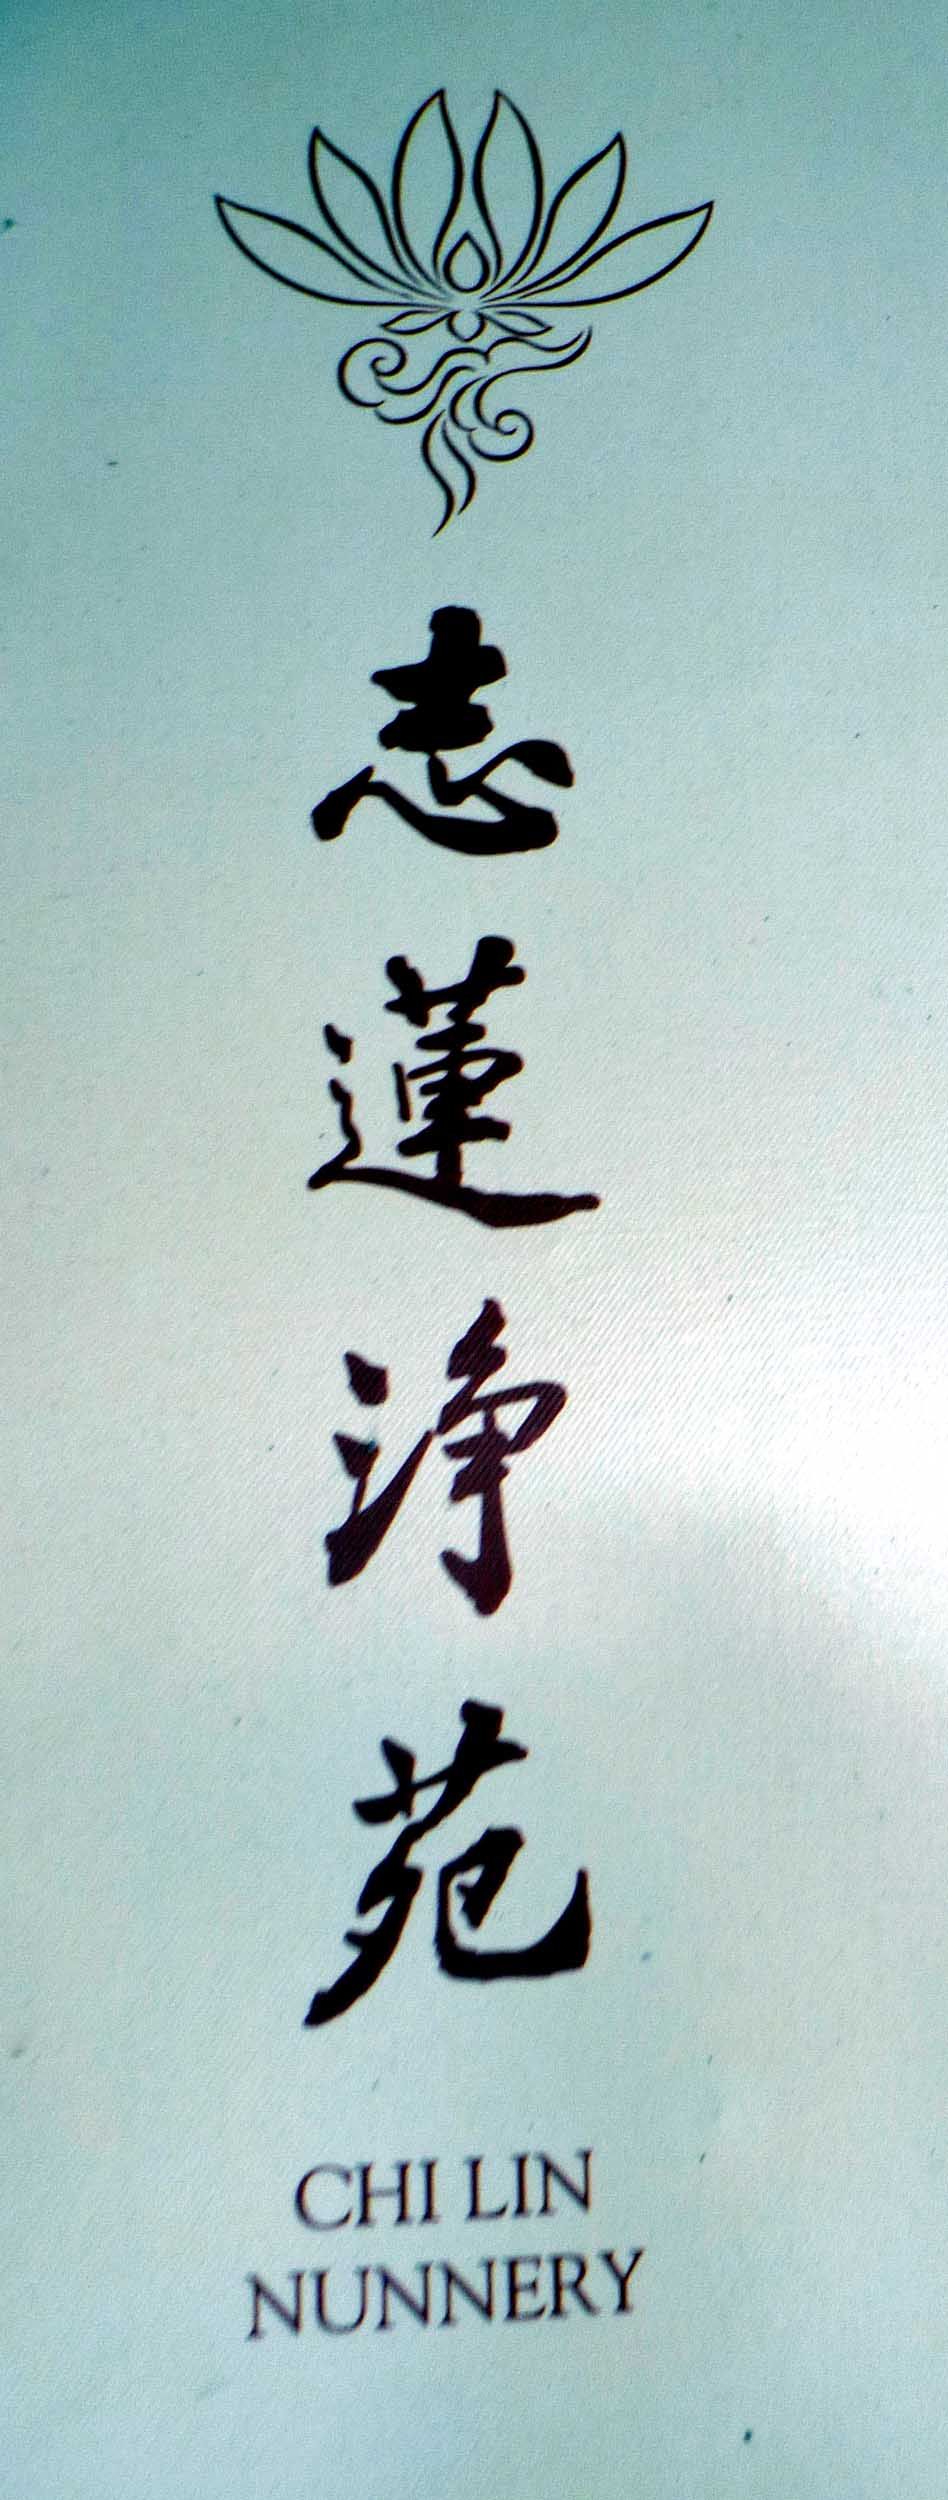 志蓮淨苑
CHI LIN
NUNNERY